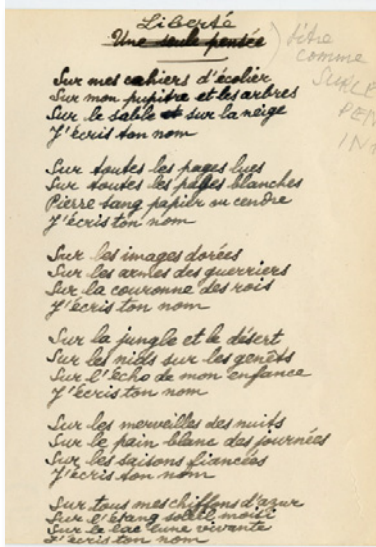 Liberté
Une seule pensée
titre
comme
Sur mes cahiers d'écolier
Sur mon pupitre et les arbres
Sur le sable et sur la neige
J'écris ton nom
Sur toutes les pages lues
Sur toutes les pages blanches
Pierre sang papier ou cendre
J'écris ton nom
Sur les images dorées
Sur les armes des guerriers
Sur la couronne des rois
J'écris ton nom
Sur la jungle et le désert
Sur les nids sur les genêts
Sur l'écho de mon enfance
J'écris ton nom
Sur les merveilles des nuits
Sur le pain blanc des journées
Sur les saisons fiancées
J'écris ton nom
Sur tous mes chiffons d'azur
Sur l'étang soleil moisi
Sur le lac lune vivante
J'écris ton nom